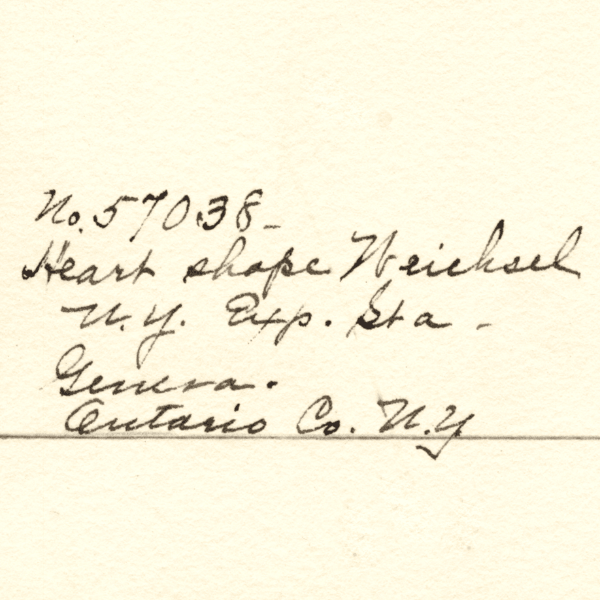 No. 57038-
Heart shape Weichsel
N.Y. Exp. Sta -
Geneva.
Ontario Co. N.Y